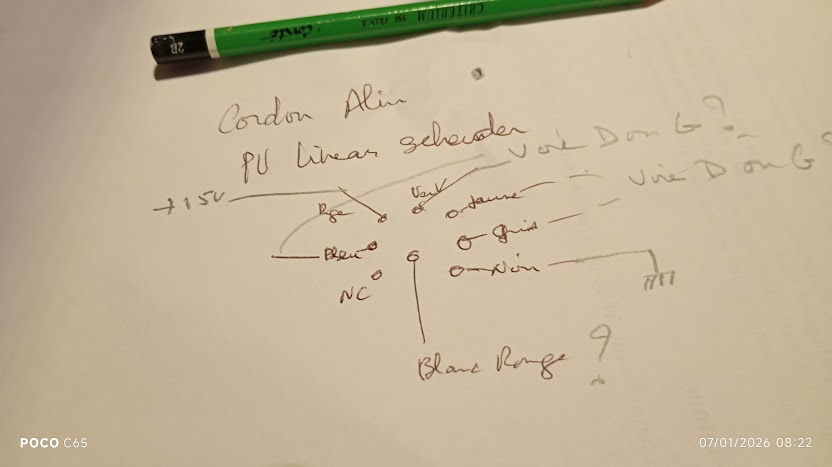 CRITERIUM
550 FRANCE
Conté
2B
Cordon Alim
PU linear
Voie D ou G ?
+15V
Rge
Vert
Jaune
Voie D ou G ?
Bleu
Gris
Noir
NC
Blanc Rouge ?
POCO C65
07/01/2026 08:22